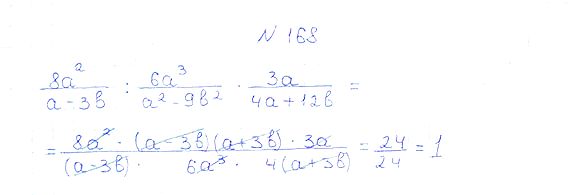 N 168
8a² / (a - 3b) : 6a³ / (a² - 9b²) · 3a / (4a + 12b) =
= 8a² · (a - 3b)(a + 3b) · 3a / (a - 3b) · 6a³ · 4(a + 3b) = 24 / 24 = 1